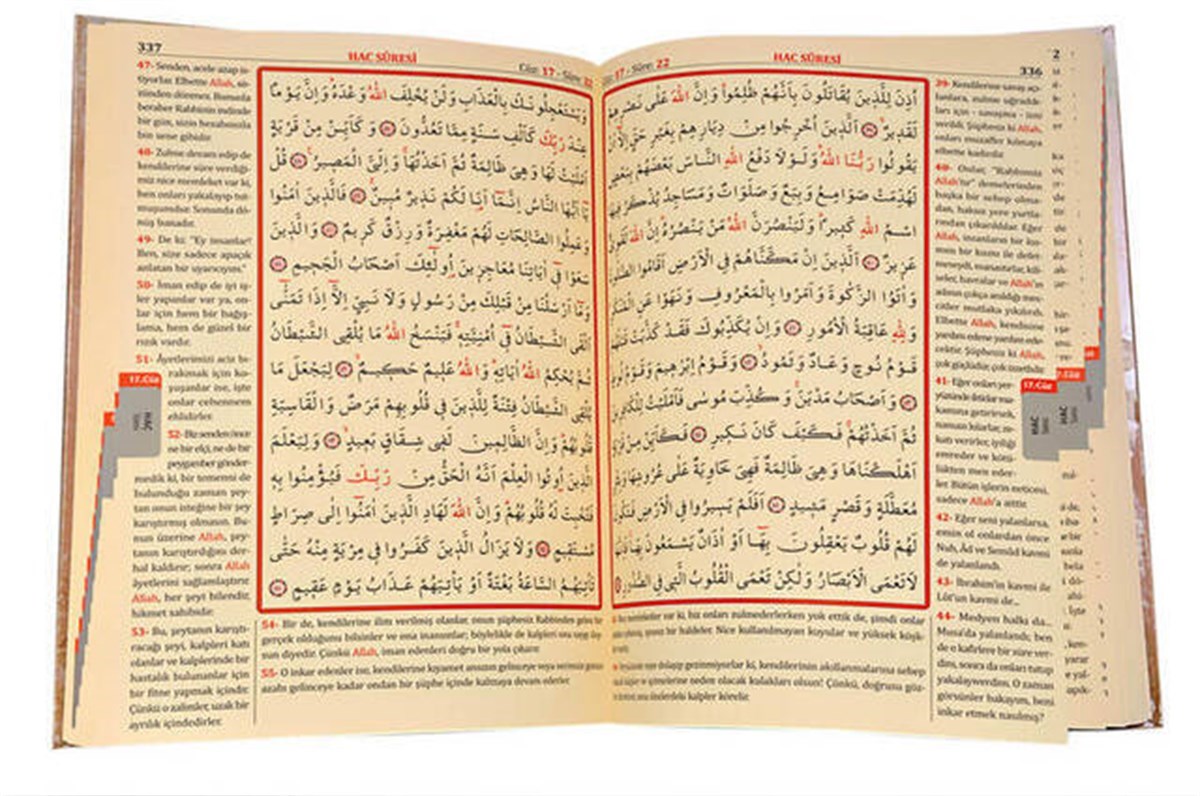 336
HAC SÛRESİ
Cüz: 17 - Sûre: 22
اُذِنَ لِلَّذِينَ يُقَاتَلُونَ بِاَنَّهُمْ ظُلِمُوا وَاِنَّ اللّٰهَ عَلٰى نَصْرِهِمْ
لَقَدِيرٌ اَلَّذِينَ اُخْرِجُوا مِنْ دِيَارِهِمْ بِغَيْرِ حَقٍّ اِلَّا اَنْ
يَقُولُوا رَبُّنَا اللّٰهُ وَلَوْلَا دَفْعُ اللّٰهِ النَّاسَ بَعْضَهُمْ بِبَعْضٍ
لَهُدِّمَتْ صَوَامِعُ وَبِيَعٌ وَصَلَوَاتٌ وَمَسَاجِدُ يُذْكَرُ فِيهَا
اسْمُ اللّٰهِ كَثِيرًا وَلَيَنْصُرَنَّ اللّٰهُ مَنْ يَنْصُرُهُ اِنَّ اللّٰهَ لَقَوِيٌّ
عَزِيزٌ اَلَّذِينَ اِنْ مَكَّنَّاهُمْ فِي الْاَرْضِ اَقَامُوا الصَّلٰوةَ
وَاٰتَوُا الزَّكٰوةَ وَاَمَرُوا بِالْمَعْرُوفِ وَنَهَوْا عَنِ الْمُنْكَرِ
وَلِلّٰهِ عَاقِبَةُ الْاُمُورِ وَاِنْ يُكَذِّبُوكَ فَقَدْ كَذَّبَتْ قَبْلَهُمْ
قَوْمُ نُوحٍ وَعَادٌ وَثَمُودُ وَقَوْمُ اِبْرٰهِيمَ وَقَوْمُ لُوطٍ
وَاَصْحَابُ مَدْيَنَ وَكُذِّبَ مُوسٰى فَاَمْلَيْتُ لِلْكَافِرِينَ
ثُمَّ اَخَذْتُهُمْ فَكَيْفَ كَانَ نَكِيرِ فَكَاَيِّنْ مِنْ قَرْيَةٍ
اَهْلَكْنَاهَا وَهِيَ ظَالِمَةٌ فَهِيَ خَاوِيَةٌ عَلٰى عُرُوشِهَا وَبِئْرٍ
مُعَطَّلَةٍ وَقَصْرٍ مَشِيدٍ اَفَلَمْ يَسِيرُوا فِي الْاَرْضِ فَتَكُونَ
لَهُمْ قُلُوبٌ يَعْقِلُونَ بِهَا اَوْ اٰذَانٌ يَسْمَعُونَ بِهَا فَاِنَّهَا
لَا تَعْمَى الْاَبْصَارُ وَلٰكِنْ تَعْمَى الْقُلُوبُ الَّتِي فِي الصُّدُورِ
39- Kendilerine savaş aç-
lanlara, zulme uğradık-
ları için - savaşma - izni
verildi. Şüphesiz ki Allah,
onları muzaffer kılmaya
elbette kadirdir.
40- Onlar, "Rabbimiz
Allah'tır" demelerinden
başka bir sebep olma-
dan, haksız yere yurtla-
rından çıkarıldılar. Eğer
Allah, insanların bir kıs-
mını bir kısmı ile defet-
meseydi, manastırlar, kili-
seler, havralar ve Allah'ın
adının çokça anıldığı mes-
citler mutlaka yıkılırdı.
Elbette Allah, kendisine
yardım edene yardım ede-
cektir. Şüphesiz ki Allah,
çok güçlüdür, çok izzetlidir.
41- Eğer onları yer-
yüzünde iktidar ma-
kamına getirirsek,
namazı kılarlar, ze-
katı verirler, iyiliği
emreder ve kötü-
lükten men eder-
ler. Bütün işlerin neticesi,
sadece Allah'a aittir.
42- Eğer seni yalanlarsa,
emin ol onlardan önce
Nuh, Âd ve Semûd kavmi
de yalanlandı.
43- İbrahim'in kavmi ile
Lût'un kavmi de...
44- Medyen halkı da...
Musa'da yalanlandı; ben
de o kafirlere bir süre ver-
dim, sonra da onları tutup
yakalayıverdim. O zaman
görsünler bakayım, beni
inkar etmek nasılmış?
17.Cüz
HAC
337
HAC SÛRESİ
Cüz: 17 - Sûre: 22
وَيَسْتَعْجِلُونَكَ بِالْعَذَابِ وَلَنْ يُخْلِفَ اللّٰهُ وَعْدَهُ وَاِنَّ يَوْمًا
عِنْدَ رَبِّكَ كَاَلْفِ سَنَةٍ مِمَّا تَعُدُّونَ وَكَاَيِّنْ مِنْ قَرْيَةٍ
اَمْلَيْتُ لَهَا وَهِيَ ظَالِمَةٌ ثُمَّ اَخَذْتُهَا وَاِلَيَّ الْمَصِيرُ قُلْ
يَا اَيُّهَا النَّاسُ اِنَّمَا اَنَا لَكُمْ نَذِيرٌ مُبِينٌ فَالَّذِينَ اٰمَنُوا
وَعَمِلُوا الصَّالِحَاتِ لَهُمْ مَغْفِرَةٌ وَرِزْقٌ كَرِيمٌ وَالَّذِينَ
سَعَوْا فِي اٰيَاتِنَا مُعَاجِزِينَ اُولٰئِكَ اَصْحَابُ الْجَحِيمِ
وَمَا اَرْسَلْنَا مِنْ قَبْلِكَ مِنْ رَسُولٍ وَلَا نَبِيٍّ اِلَّا اِذَا تَمَنّٰى
اَلْقَى الشَّيْطَانُ فِي اُمْنِيَّتِهِ فَيَنْسَخُ اللّٰهُ مَا يُلْقِي الشَّيْطَانُ
ثُمَّ يُحْكِمُ اللّٰهُ اٰيَاتِهِ وَاللّٰهُ عَلِيمٌ حَكِيمٌ لِيَجْعَلَ مَا
يُلْقِي الشَّيْطَانُ فِتْنَةً لِلَّذِينَ فِي قُلُوبِهِمْ مَرَضٌ وَالْقَاسِيَةِ
قُلُوبُهُمْ وَاِنَّ الظَّالِمِينَ لَفِي شِقَاقٍ بَعِيدٍ وَلِيَعْلَمَ
الَّذِينَ اُوتُوا الْعِلْمَ اَنَّهُ الْحَقُّ مِنْ رَبِّكَ فَيُؤْمِنُوا بِهِ
فَتُخْبِتَ لَهُ قُلُوبُهُمْ وَاِنَّ اللّٰهَ لَهَادِ الَّذِينَ اٰمَنُوا اِلٰى صِرَاطٍ
مُسْتَقِيمٍ وَلَا يَزَالُ الَّذِينَ كَفَرُوا فِي مِرْيَةٍ مِنْهُ حَتّٰى
تَأْتِيَهُمُ السَّاعَةُ بَغْتَةً اَوْ يَأْتِيَهُمْ عَذَابُ يَوْمٍ عَقِيمٍ
47- Senden, acele azap is-
tiyorlar. Elbette Allah, sö-
zünden dönmez. Bununla
beraber Rabbinin indinde
bir gün, sizin hesabınızla
bin sene gibidir.
48- Zulme devam edip de
kendilerine süre verdiği-
miz nice memleket var ki,
ben onları yakalayıp tut-
muşumdur. Sonunda dö-
nüş banadır.
49- De ki: "Ey insanlar!
Ben, size sadece apaçık
anlatan bir uyarıcıyım."
50- İman edip de iyi iş-
ler yapanlar var ya, on-
lar için hem bir bağış-
lama, hem de güzel bir
rızık vardır.
51- Âyetlerimizi aciz bı-
rakmak için ko-
yuşanlar ise, işte
onlar cehennem
ehlidirler.
52- Biz senden önce
ne bir elçi, ne de bir
peygamber gönder-
medik ki, bir temenni de
bulunduğu zaman şey-
tan onun isteğine bir şey
karıştırmış olmasın. Bu-
nun üzerine Allah, şey-
tanın karıştırdığını der-
hal kaldırır; sonra Allah
âyetlerini sağlamlaştırır.
Allah, her şeyi bilendir,
hikmet sahibidir.
53- Bu, şeytanın karıştı-
racağı şeyi, kalpleri katı
olanlar ve kalplerinde bir
hastalık bulunanlar için
bir fitne yapmak içindir.
Çünkü o zalimler, uzak bir
ayrılık içindedirler.
54- Bir de, kendilerine ilim verilmiş olanlar, onun şüphesiz Rabbinden gelen bir
gerçek olduğunu bilsinler ve ona inansınlar; böylelikle de kalpleri ona saygı duy-
sun diyedir. Çünkü Allah, iman edenleri doğru bir yola çıkarır.
55- O inkar edenler ise, kendilerine kıyamet ansızın gelinceye veya verimsiz günün
azabı gelinceye kadar ondan bir şüphe içinde kalmaya devam ederler.
17.Cüz
HAC